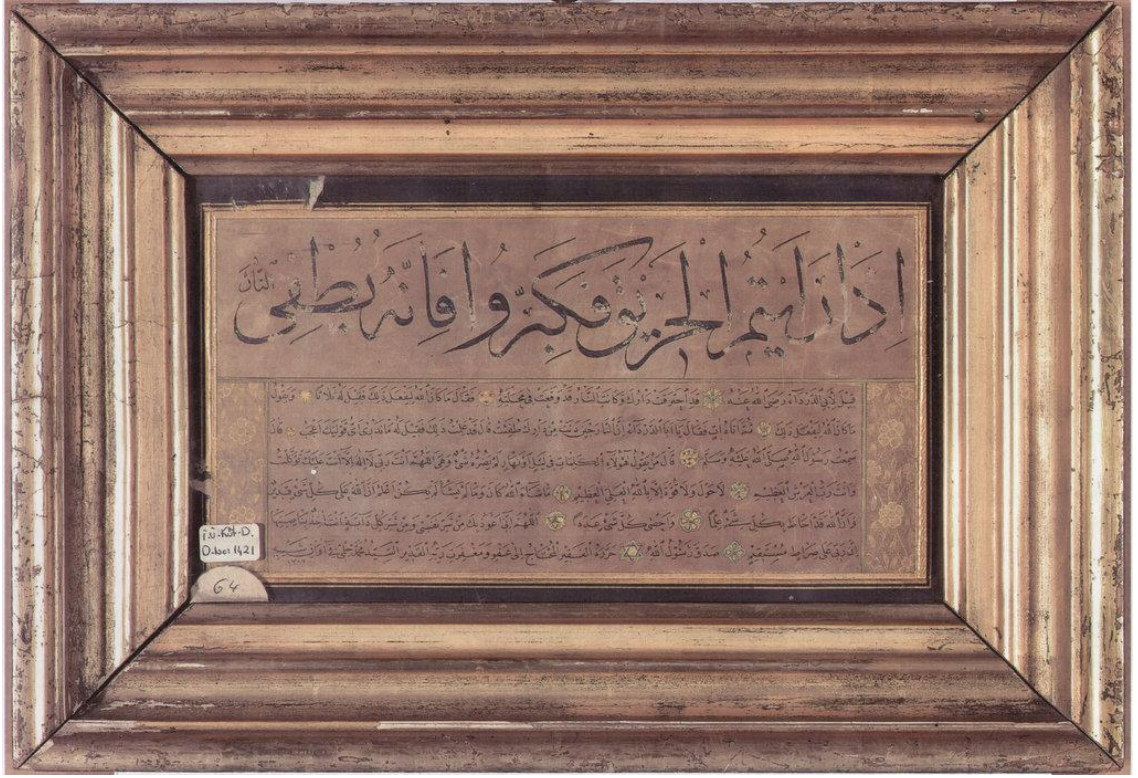 اِذَا رَاَيْتُمُ الْحَرِيقَ فَكَبِّرُوا فَاِنَّهُ يُطْفِئُ النَّارَ
قيل لابى الدرداء رضى الله عنه قد احترقت دارك وكانت النار قد وقعت فى محلته فقال ما كان الله ليفعل ذلك فقيل له ثلاثا ويقول
ما كان الله ليفعل ذلك ثم اتاه ات فقال يا ابا الدرداء ان النار حين دنت من دارك طفئت قال قد علمت ذلك فقيل له ما ندرى اى قوليك اعجب قال
سمعت رسول الله صلى الله عليه وسلم قال من يقول هؤلاء الكلمات فى ليل او نهار لم يضره شئ وهى اللهم انت ربى لا اله الا انت عليك توكلت
وانت رب العرش العظيم لا حول ولا قوة الا بالله العلى العظيم ما شاء الله كان وما لم يشأ لم يكن اعلم ان الله على كل شئ قدير
وان الله قد احاط بكل شئ علما واحصى كل شئ عددا اللهم انى اعوذ بك من شر نفسى ومن شر كل دابة انت اخذ بناصيتها
ان ربى على صراط مستقيم صدق رسول الله حرره الفقير المحتاج الى عفو ومغفرة ربه القدير السيد محمد
İ.Ü. Küt. D.
D. No: 1421
64